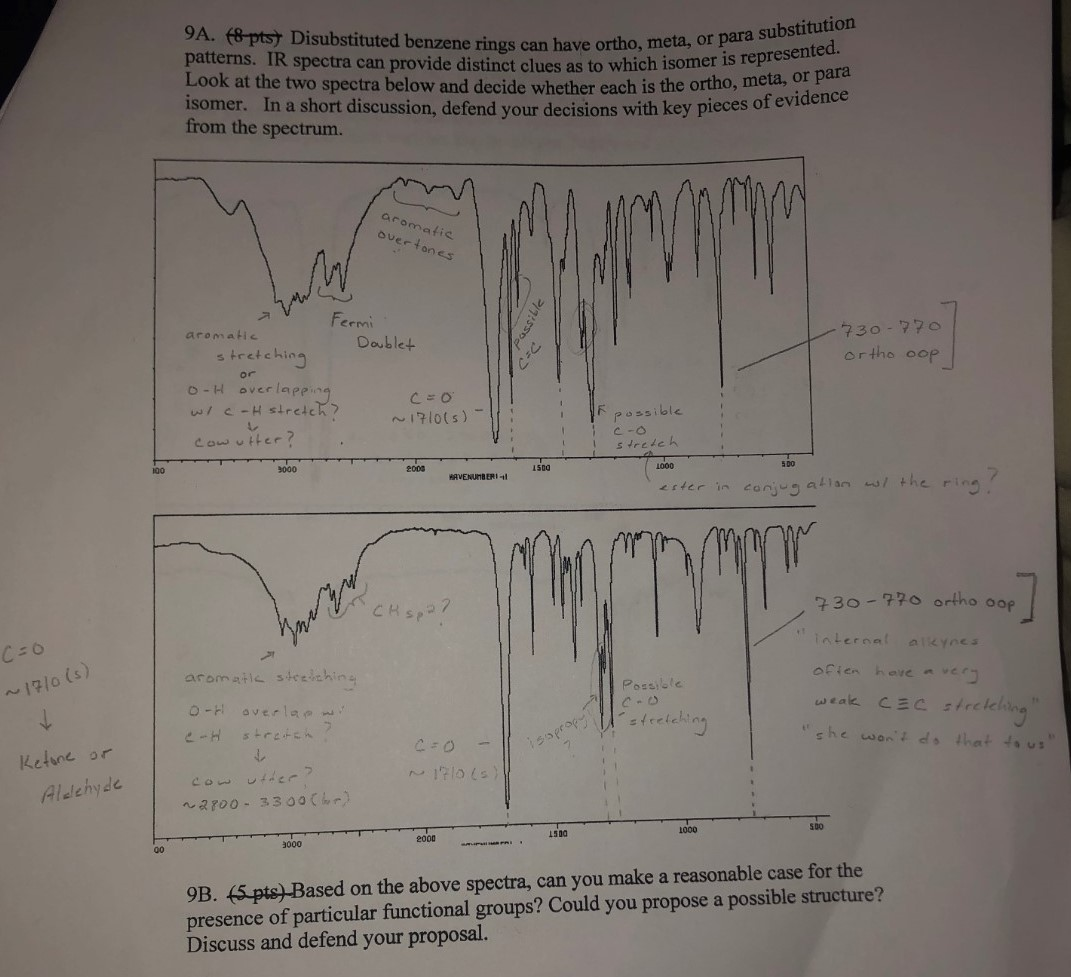 9A. (8 pts) Disubstituted benzene rings can have ortho, meta, or para substitution
patterns. IR spectra can provide distinct clues as to which isomer is represented.
Look at the two spectra below and decide whether each is the ortho, meta, or para
isomer. In a short discussion, defend your decisions with key pieces of evidence
from the spectrum.
aromatic
overtones
Fermi
Doublet
aromatic
stretching
or
O-H overlapping
w/ C-H stretch?
cow utter?
possible
C=C
C=O
~1710(s)
possible
C-O
stretch
730-770
ortho oop
3000
2000
1500
1000
500
ester in conjugation w/ the ring?
CH sp2?
aromatic stretching
O-H overlap w/
C-H stretch?
cow utter?
~2800-3300(br)
C=O
~1710(s)
isopropyl
?
Possible
C-O
stretching
730-770 ortho oop
"internal alkynes
often have a very
weak C≡C stretching"
"she won't do that to us"
C=O
~1710(s)
Ketone or
Aldehyde
3000
2000
1500
1000
500
9B. (5 pts) Based on the above spectra, can you make a reasonable case for the
presence of particular functional groups? Could you propose a possible structure?
Discuss and defend your proposal.